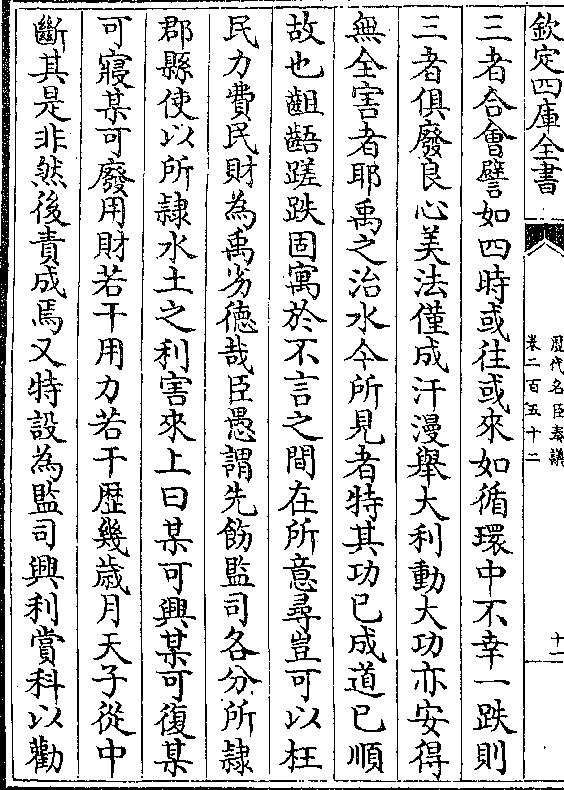 欽定四庫全書
歷代名臣奏議
卷二百五十二
十一
三者合會譬如四時或往或來如循環中不幸一跌則
三者俱廢良心美法僅成汗漫舉大利動大功亦安得
無全害者耶禹之治水今所見者特其功已成道已順
故也齟齬蹉跌固寓於不言之間在所意尋豈可以枉
民力費民財為禹劣德哉臣愚謂先飭監司各分所隷
郡縣使以所隷水土之利害來上曰某可興某可復某
可寢某可廢用財若干用力若干歴幾歲月天子從中
斷其是非然後責成焉又特設為監司興利賞科以勸